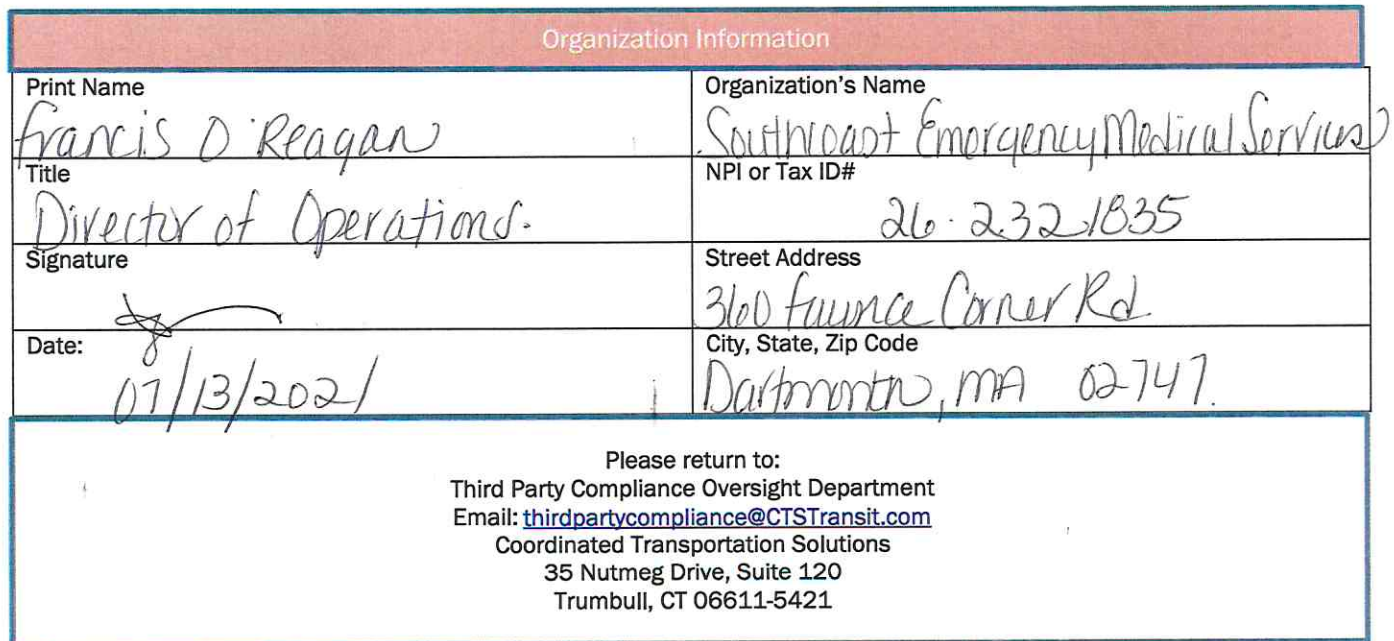 Organization Information
Print Name
Francis O'Reagan
Organization's Name
Southcoast Emergency Medical Services
Title
Director of Operations.
NPI or Tax ID#
26-2321835
Signature
Street Address
360 Faunce Corner Rd
Date:
07/13/2021
City, State, Zip Code
Dartmouth, MA 02747.
Please return to:
Third Party Compliance Oversight Department
Email: thirdpartycompliance@CTSTransit.com
Coordinated Transportation Solutions
35 Nutmeg Drive, Suite 120
Trumbull, CT 06611-5421